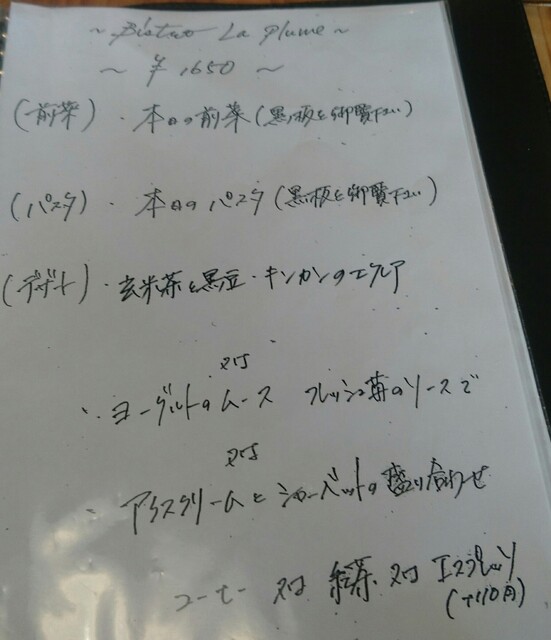 ~ Bistro La plume ~
~ ¥1650 ~
(前菜)・本日の前菜(黒板を御覧下さい)
(パスタ)・本日のパスタ(黒板を御覧下さい)
(デザート)・玄米茶と黒豆・キンカンのエクレア
又は
・ヨーグルトのムース フレッシュ苺のソースで
又は
・アイスクリームとシャーベットの盛り合わせ
コーヒー 又は 紅茶 又は エスプレッソ
(+110円)